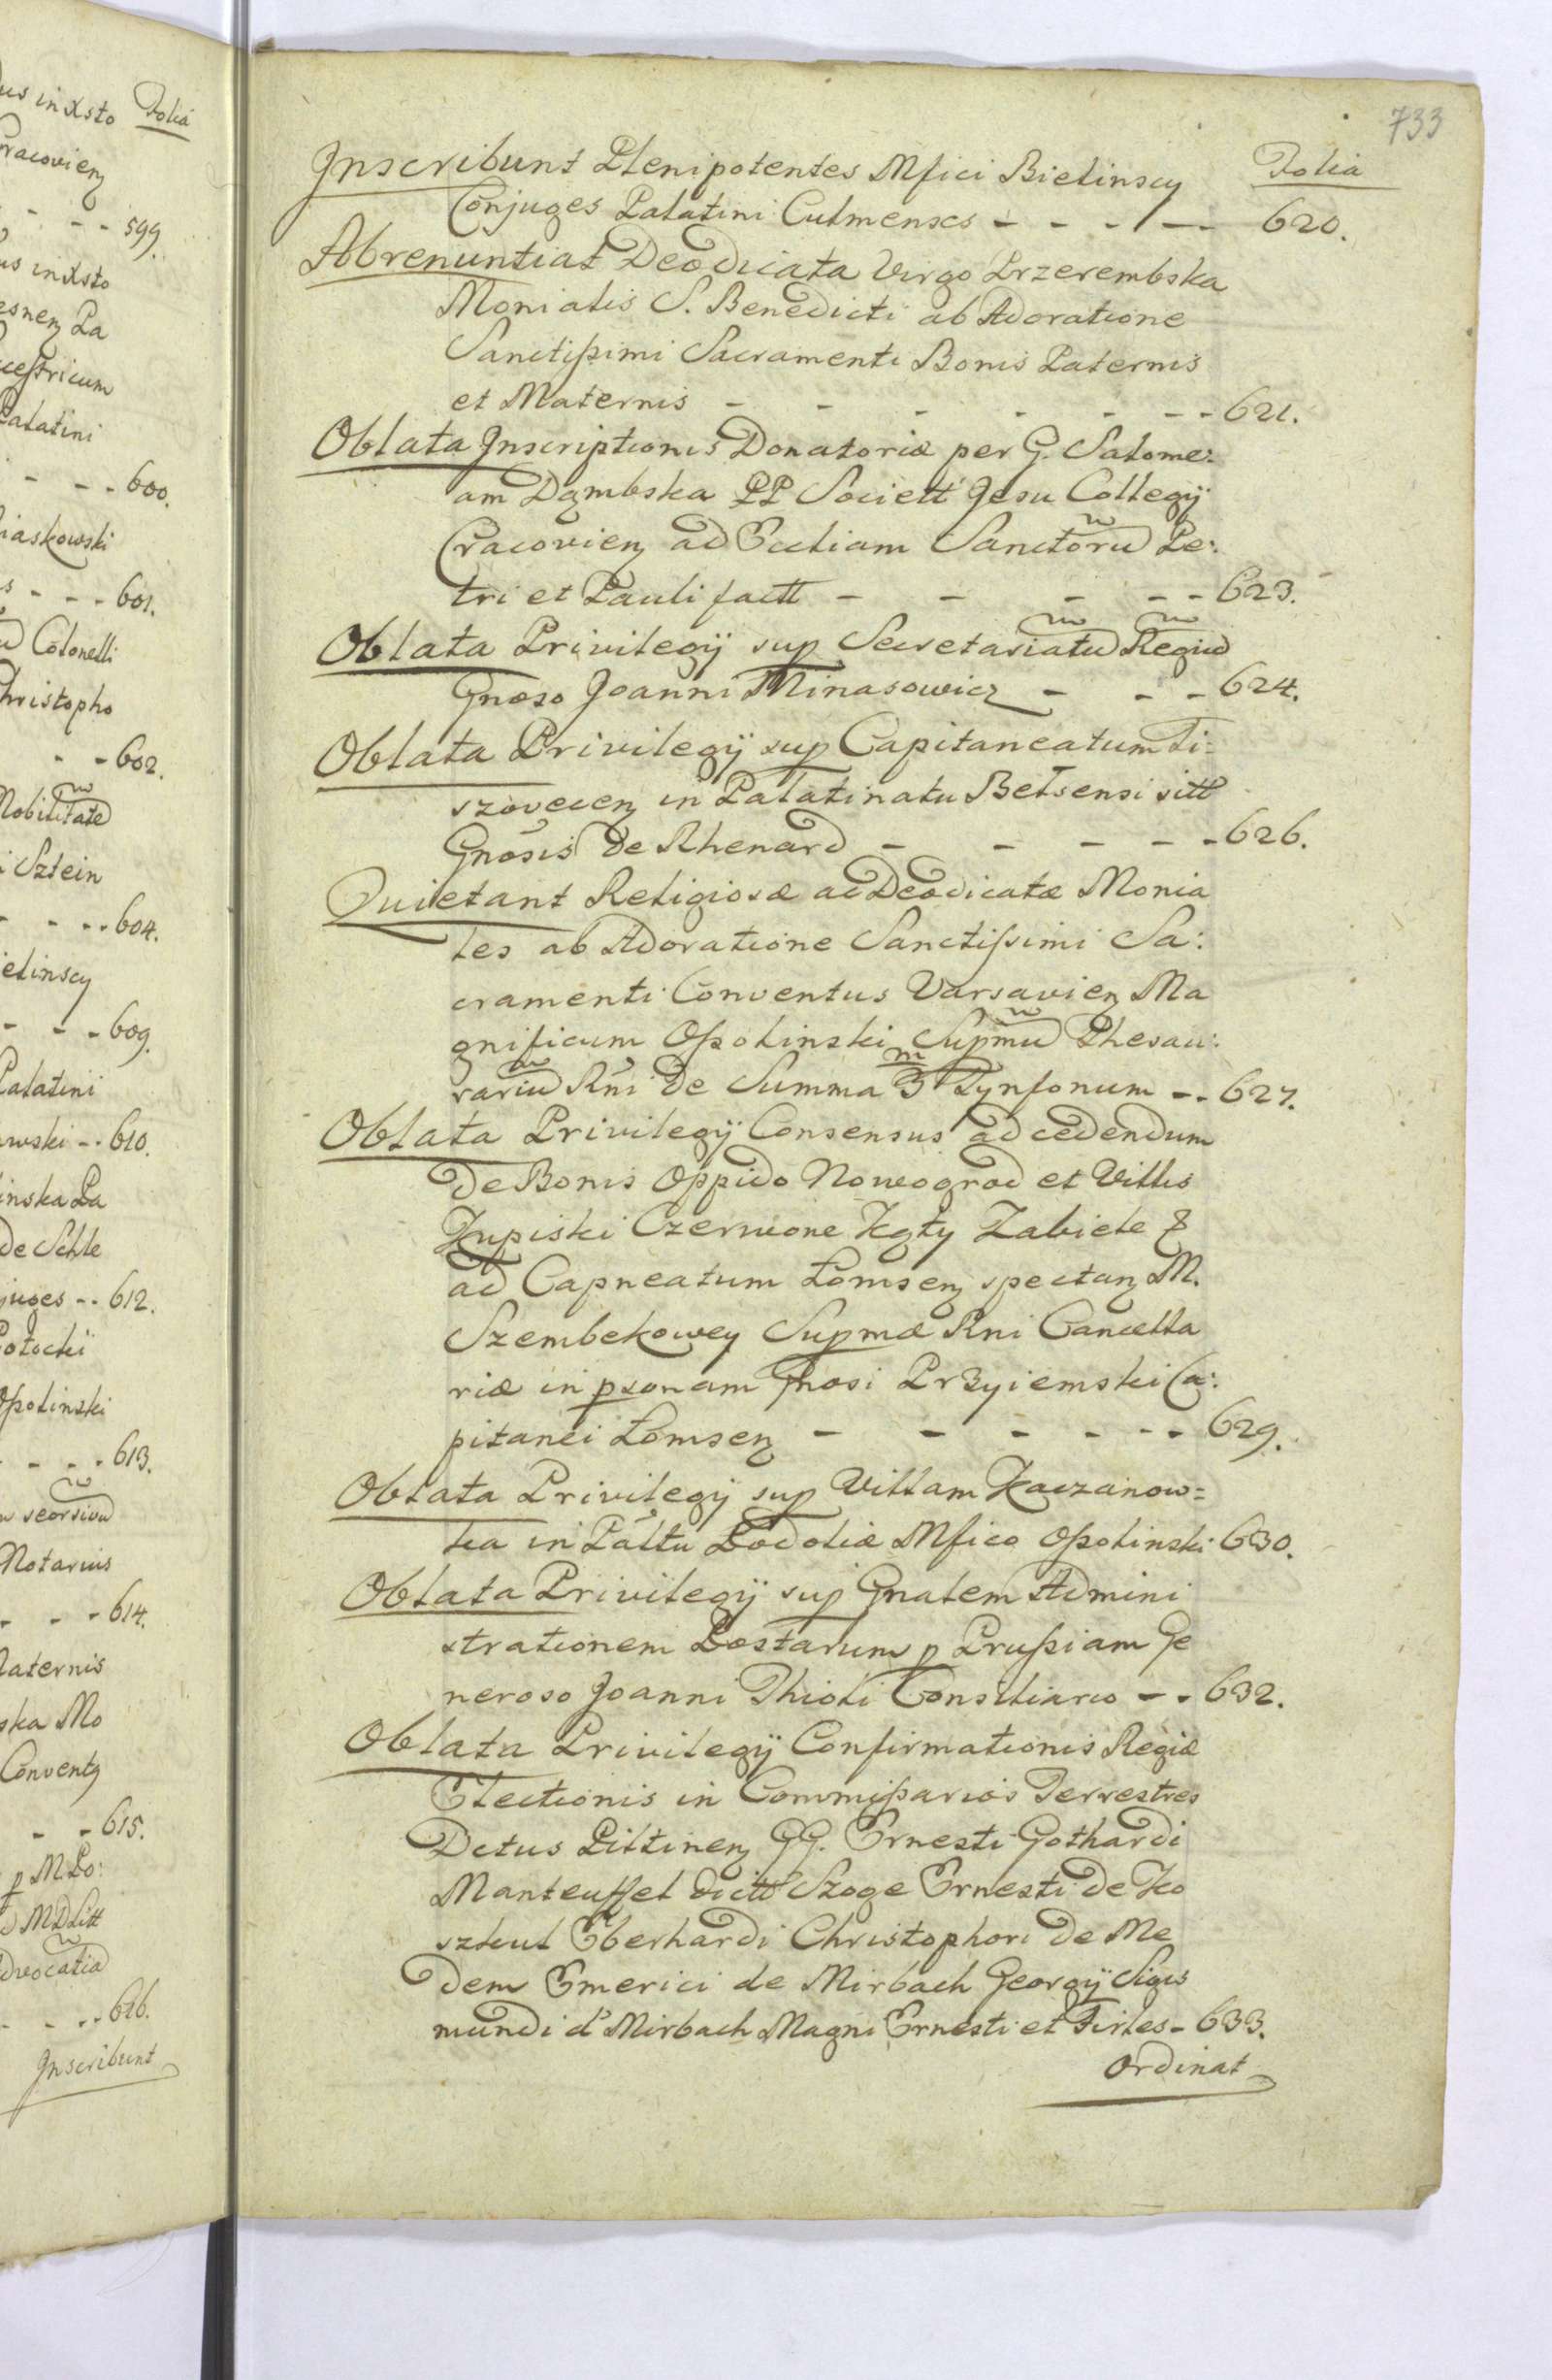 us inxsto Folia
Cracovien
- - - 599.
us inxsto
esnen Pa
cestricum
Palatini
- - - 600.
iaskowski
s - - - 601.
Colonelli
hristopho
- - 602.
Nobilitate
i Sztein
- - - 604.
ielinscy
- - - 609.
Palatini
wski - - 610.
inska Pa
de Schle
juges - - 612.
Potocki
Opolinski
- - - 613.
seorsivu
Notarius
- - - 614.
Maternis
ska Mo
Conventg
- - 615.
p M Po:
M D Litt
dvocatia
- - - 616.
Inscribunt
733
Folia
Inscribunt Plenipotentes Mfici Bielinscy
Conjuges Palatini Culmenses - - - - - 620.
Abrenuntiat Deodicata Virgo Przerembska
Monialis S. Benedicti ab Adoratione
Sanctissimi Sacramenti Bonis Paternis
et Maternis - - - - - - - 621.
Oblata Inscriptionis Donatoriæ per G. Salome:
am Dąmbska PP Societt Jesu Collegij
Cracovien ad Eccliam Sanctoru Pe:
tri et Pauli factt - - - - - 623.
Oblata Privilegij sup Secretariatu Regiu
Gnoso Joanni Minasowicz - - - 624.
Oblata Privilegij sup Capitaneatum Ti=
szovecen in Palatinatu Belsensi sitt
Gnosis de Rhenard - - - - - 626.
Quietant Religiosæ ac Deodicatæ Monia
les ab Adoratione Sanctissimi Sa:
cramenti Conventus Varsavien Ma
gnificum Opolinski Supmu Thesau:
rariu Rni de Summa 3 m Tynfonum - - 627.
Oblata Privilegij Consensus ad cedendum
de Bonis Oppido Nowogrod et Villis
Kupiski Czerwone Kąty Zabiele &
ad Capneatum Lomsen spectan M.
Szembekowey Supmæ Rni Cancella
riæ in psonam Gnosi Przyiemski Ca:
pitanei Łomsen - - - - - - 629.
Oblata Privilegij sup Villam Kaczanow=
ka in Palttu Podoliæ Mfico Opolinski 630.
Oblata Privilegij sup Gnalem Admini
strationem Postarum p Prussiam Ge
neroso Joanni Thioli Consiliario - - 632.
Oblata Privilegij Confirmationis Regiæ
Electionis in Commissarios Terrestres
Dctus Piltinen GG. Ernesti Gothardi
Manteuffel dictt Szoge Ernesti de Ko
szkul Eberhardi Christophori de Me
dem Emerici de Mirbach Georgij Sigis
mundi d' Mirbach Magni Ernesti et Firles - 633.
Ordinat